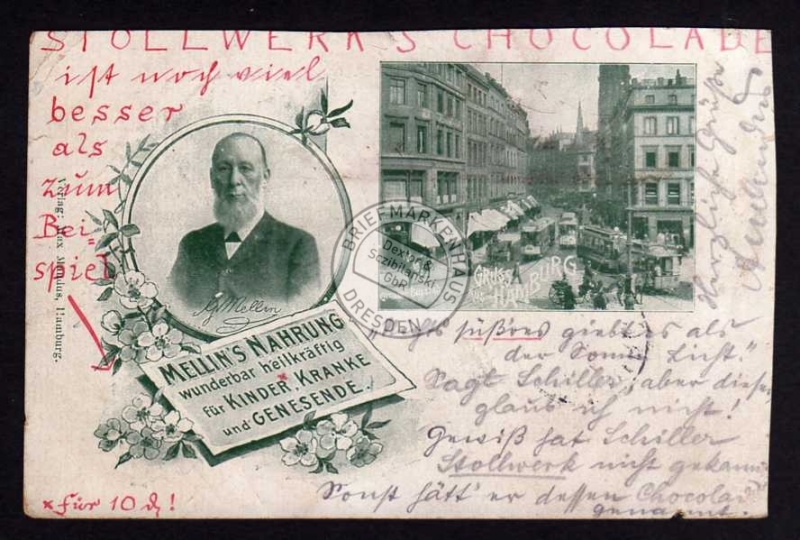 STOLLWERK'S CHOCOLADE
ist noch viel
besser
als
zum
Bei-
spiel
Verlag: Max Mendus, Hamburg.
GMellin
MELLIN'S NAHRUNG
wunderbar heilkräftig
für KINDER, KRANKE
und GENESENDE.
* für 10 ₰!
GRUSS
aus HAMBURG
BRIEFMARKENHAUS
Dexler &
Sczibilanski
GbR
DRESDEN
Herzliche Grüße
süßres giebt es als
der Sonne Licht."
Sagt Schiller, aber dieses
glaub ich nicht!
Gewiß hat Schiller
Stollwerk nicht gekannt
Sonst hätt' er dessen Chocolad
genannt.